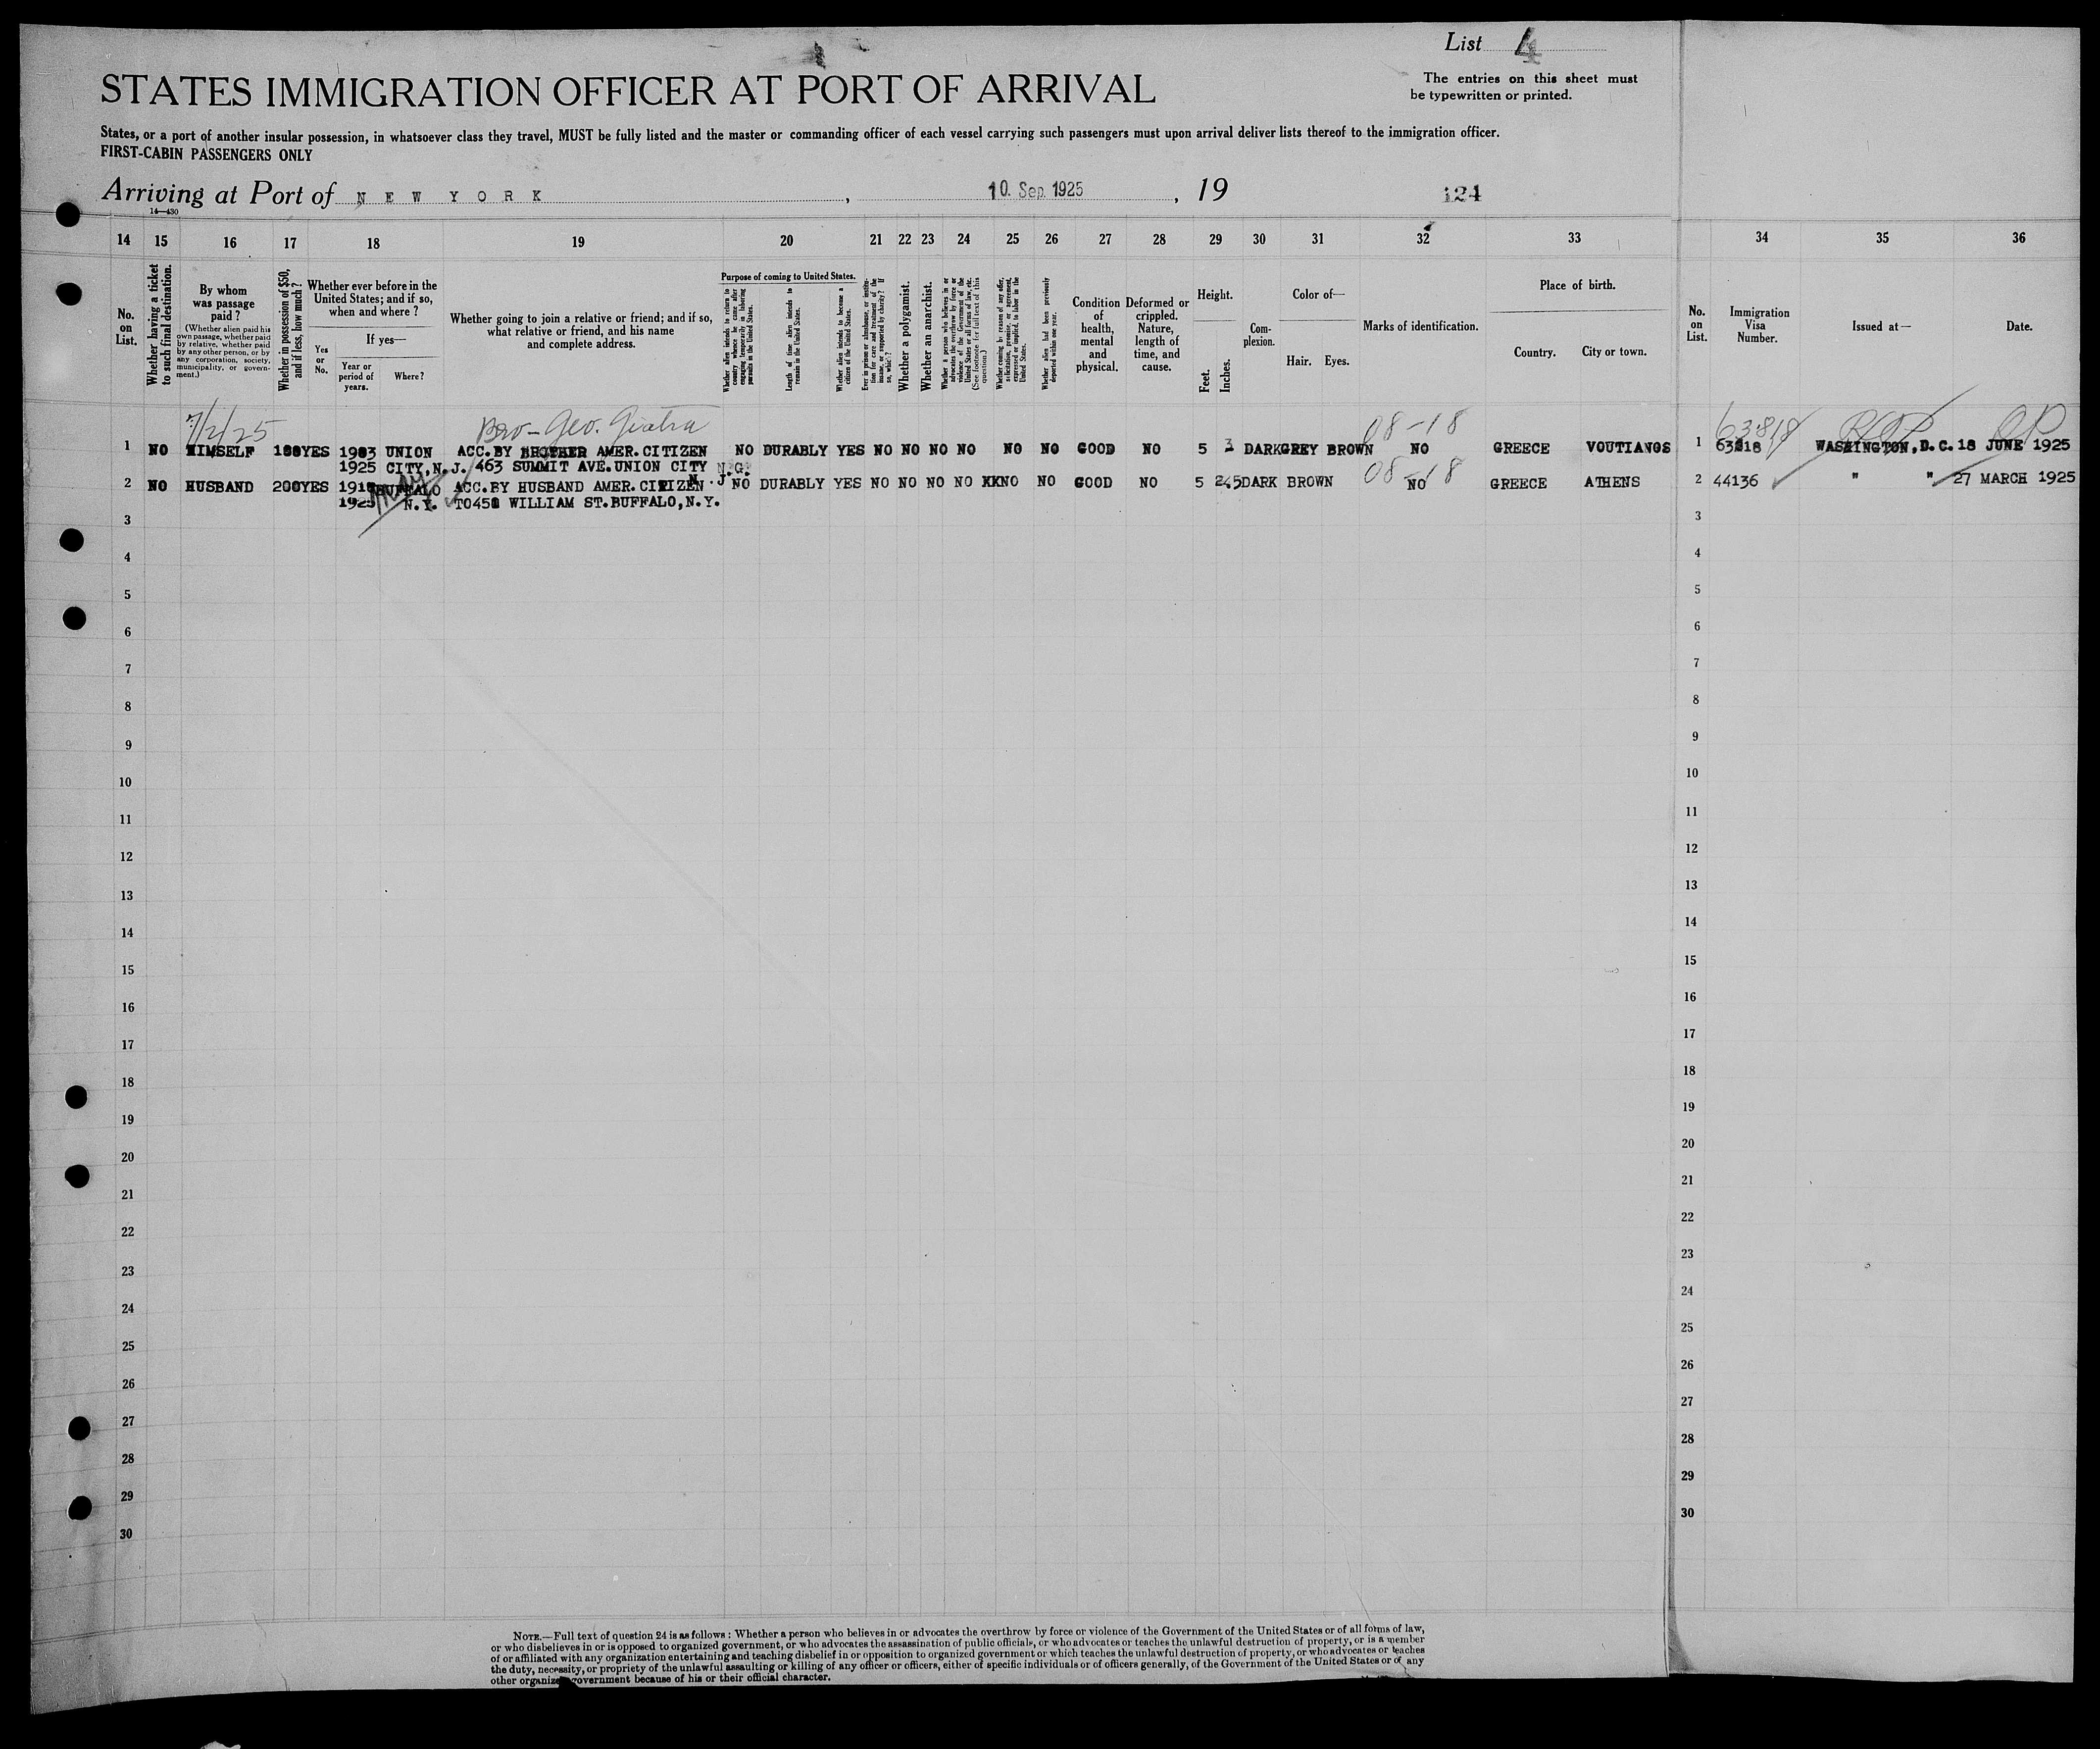 List 4
STATES IMMIGRATION OFFICER AT PORT OF ARRIVAL
The entries on this sheet must
be typewritten or printed.
States, or a port of another insular possession, in whatsoever class they travel, MUST be fully listed and the master or commanding officer of each vessel carrying such passengers must upon arrival deliver lists thereof to the immigration officer.
FIRST-CABIN PASSENGERS ONLY
Arriving at Port of NEW YORK, 10. Sep. 1925, 19
124
14—430
14 15 16 17 18 19 20 21 22 23 24 25 26 27 28 29 30 31 32 33 34 35 36
No. on List.
Whether having a ticket to such final destination.
By whom was passage paid?
(Whether alien paid his own passage, whether paid by relative, whether paid by any other person, or by any corporation, society, municipality, or government.)
Whether in possession of $50, and if less, how much?
Whether ever before in the United States; and if so, when and where?
Yes or No.
If yes—
Year or period of years.
Where?
Whether going to join a relative or friend; and if so, what relative or friend, and his name and complete address.
Purpose of coming to United States.
Whether alien intends to return to country whence he came after engaging temporarily in laboring pursuits in the United States.
Length of time alien intends to remain in the United States.
Whether alien intends to become a citizen of the United States.
Ever in prison or almshouse, or institution for care and treatment of the insane, or supported by charity? If so, which?
Whether a polygamist.
Whether an anarchist.
Whether a person who believes in or advocates the overthrow by force or violence of the Government of the United States or all forms of law, etc. (See footnote for full text of this question.)
Whether coming by reason of any offer, solicitation, promise, or agreement, expressed or implied, to labor in the United States.
Whether alien had been previously deported within one year.
Condition of health, mental and physical.
Deformed or crippled. Nature, length of time, and cause.
Height.
Feet. Inches.
Complexion.
Color of—
Hair. Eyes.
Marks of identification.
Place of birth.
Country. City or town.
No. on List.
Immigration Visa Number.
Issued at—
Date.
7/2/25 Bro-Geo. Giatra 08-18 63818
1 NO HIMSELF 100 YES 1903 UNION ACC.BY BROTHER AMER.CITIZEN NO DURABLY YES NO NO NO NO NO NO GOOD NO 5 3 DARK GREY BROWN NO GREECE VOUTIANOS 1 63818 WASHINGTON,D.C. 18 JUNE 1925
1925 CITY,N.J. 463 SUMMIT AVE.UNION CITY N.G.
N.J 08-18
2 NO HUSBAND 200 YES 1918 BUFFALO ACC.BY HUSBAND AMER.CITIZEN NO DURABLY YES NO NO NO NO XXNO NO GOOD NO 5 2.5 DARK BROWN NO GREECE ATHENS 2 44136 " " 27 MARCH 1925
1925 N.Y. TO 451 WILLIAM ST.BUFFALO,N.Y.
3 3
4 4
5 5
6 6
7 7
8 8
9 9
10 10
11 11
12 12
13 13
14 14
15 15
16 16
17 17
18 18
19 19
20 20
21 21
22 22
23 23
24 24
25 25
26 26
27 27
28 28
29 29
30 30
NOTE.—Full text of question 24 is as follows: Whether a person who believes in or advocates the overthrow by force or violence of the Government of the United States or of all forms of law,
or who disbelieves in or is opposed to organized government, or who advocates the assassination of public officials, or who advocates or teaches the unlawful destruction of property, or is a member
of or affiliated with any organization entertaining and teaching disbelief in or opposition to organized government or which teaches the unlawful destruction of property, or who advocates or teaches
the duty, necessity, or propriety of the unlawful assaulting or killing of any officer or officers, either of specific individuals or of officers generally, of the Government of the United States or of any
other organized government because of his or their official character.